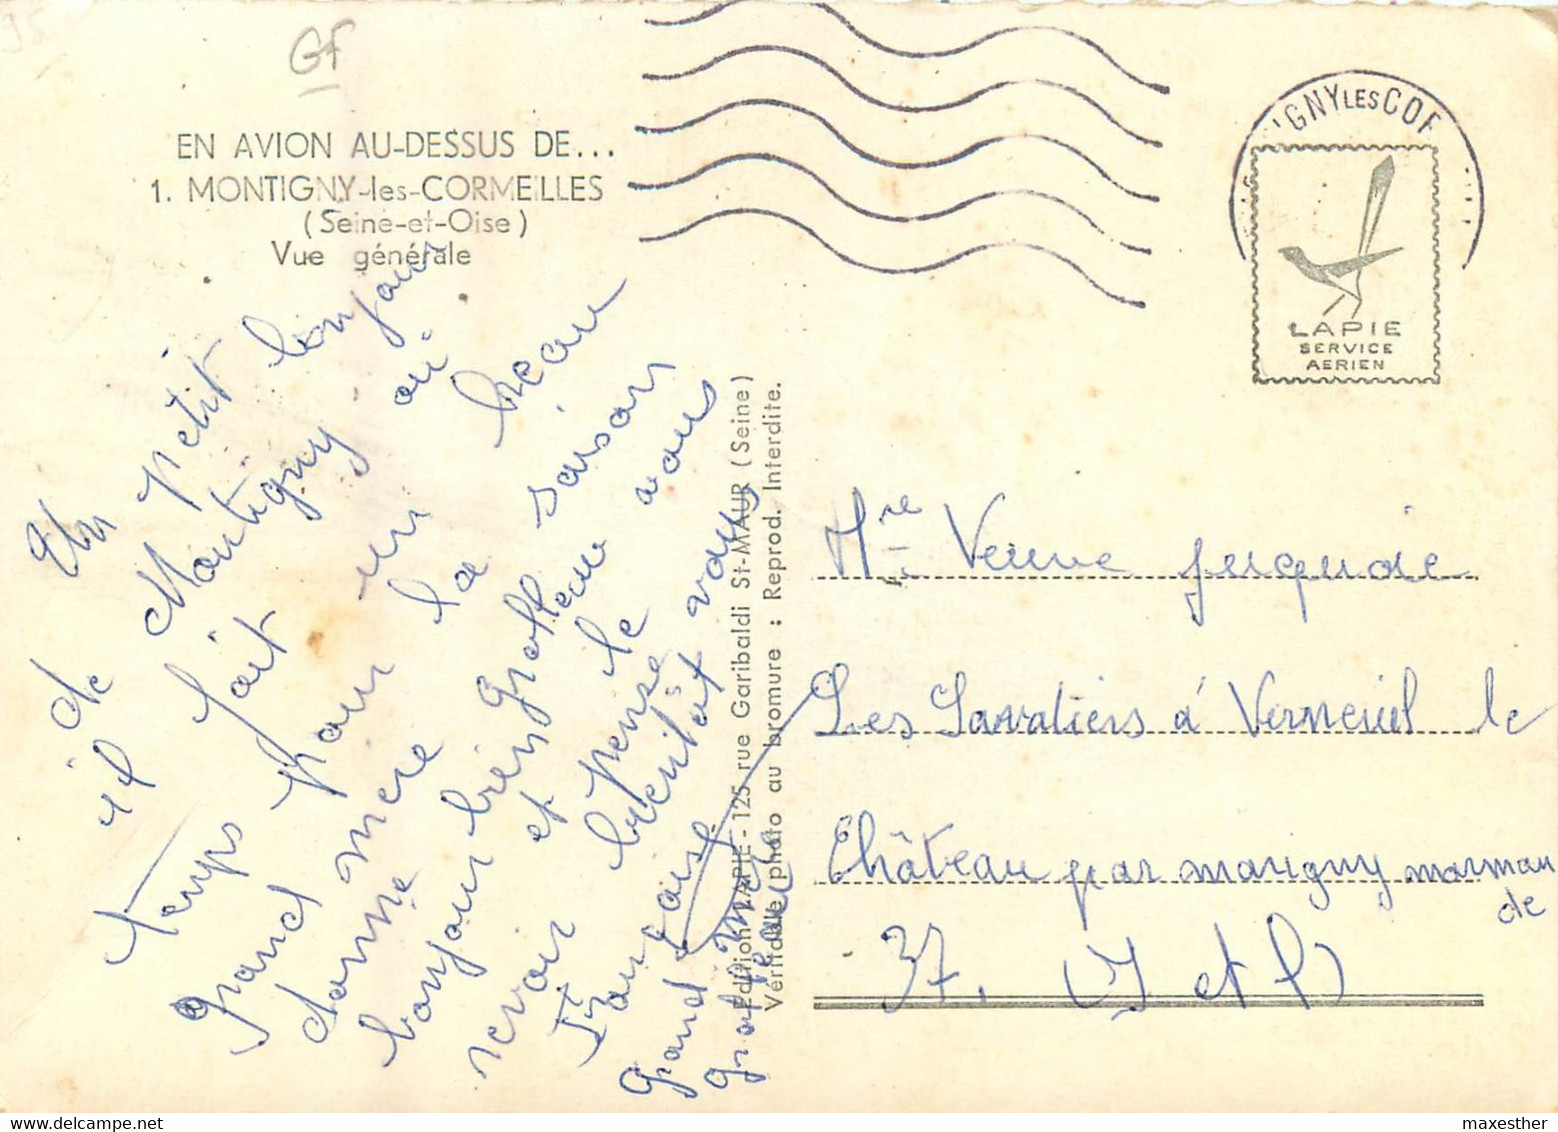 95
GF
EN AVION AU-DESSUS DE...
1. MONTIGNY-les-CORMEILLES
(Seine-et-Oise)
Vue générale
Un petit bonjour
de Montigny où
il fait un beau
temps pour la saison
grand mere
donne
bonjour
revoir et le
pense
bientôt vous
Françoise
Grand mere
IGNY LES COR
LAPIE
SERVICE
AERIEN
Edition LAPIE - 125, rue Garibaldi St-MAUR (Seine)
Véritable photo au bromure : Reprod. Interdite.
Mre Veuve
Les Savatiers à Verneuil le
Château par marigny marman
de
37. (I et L)
maxesther